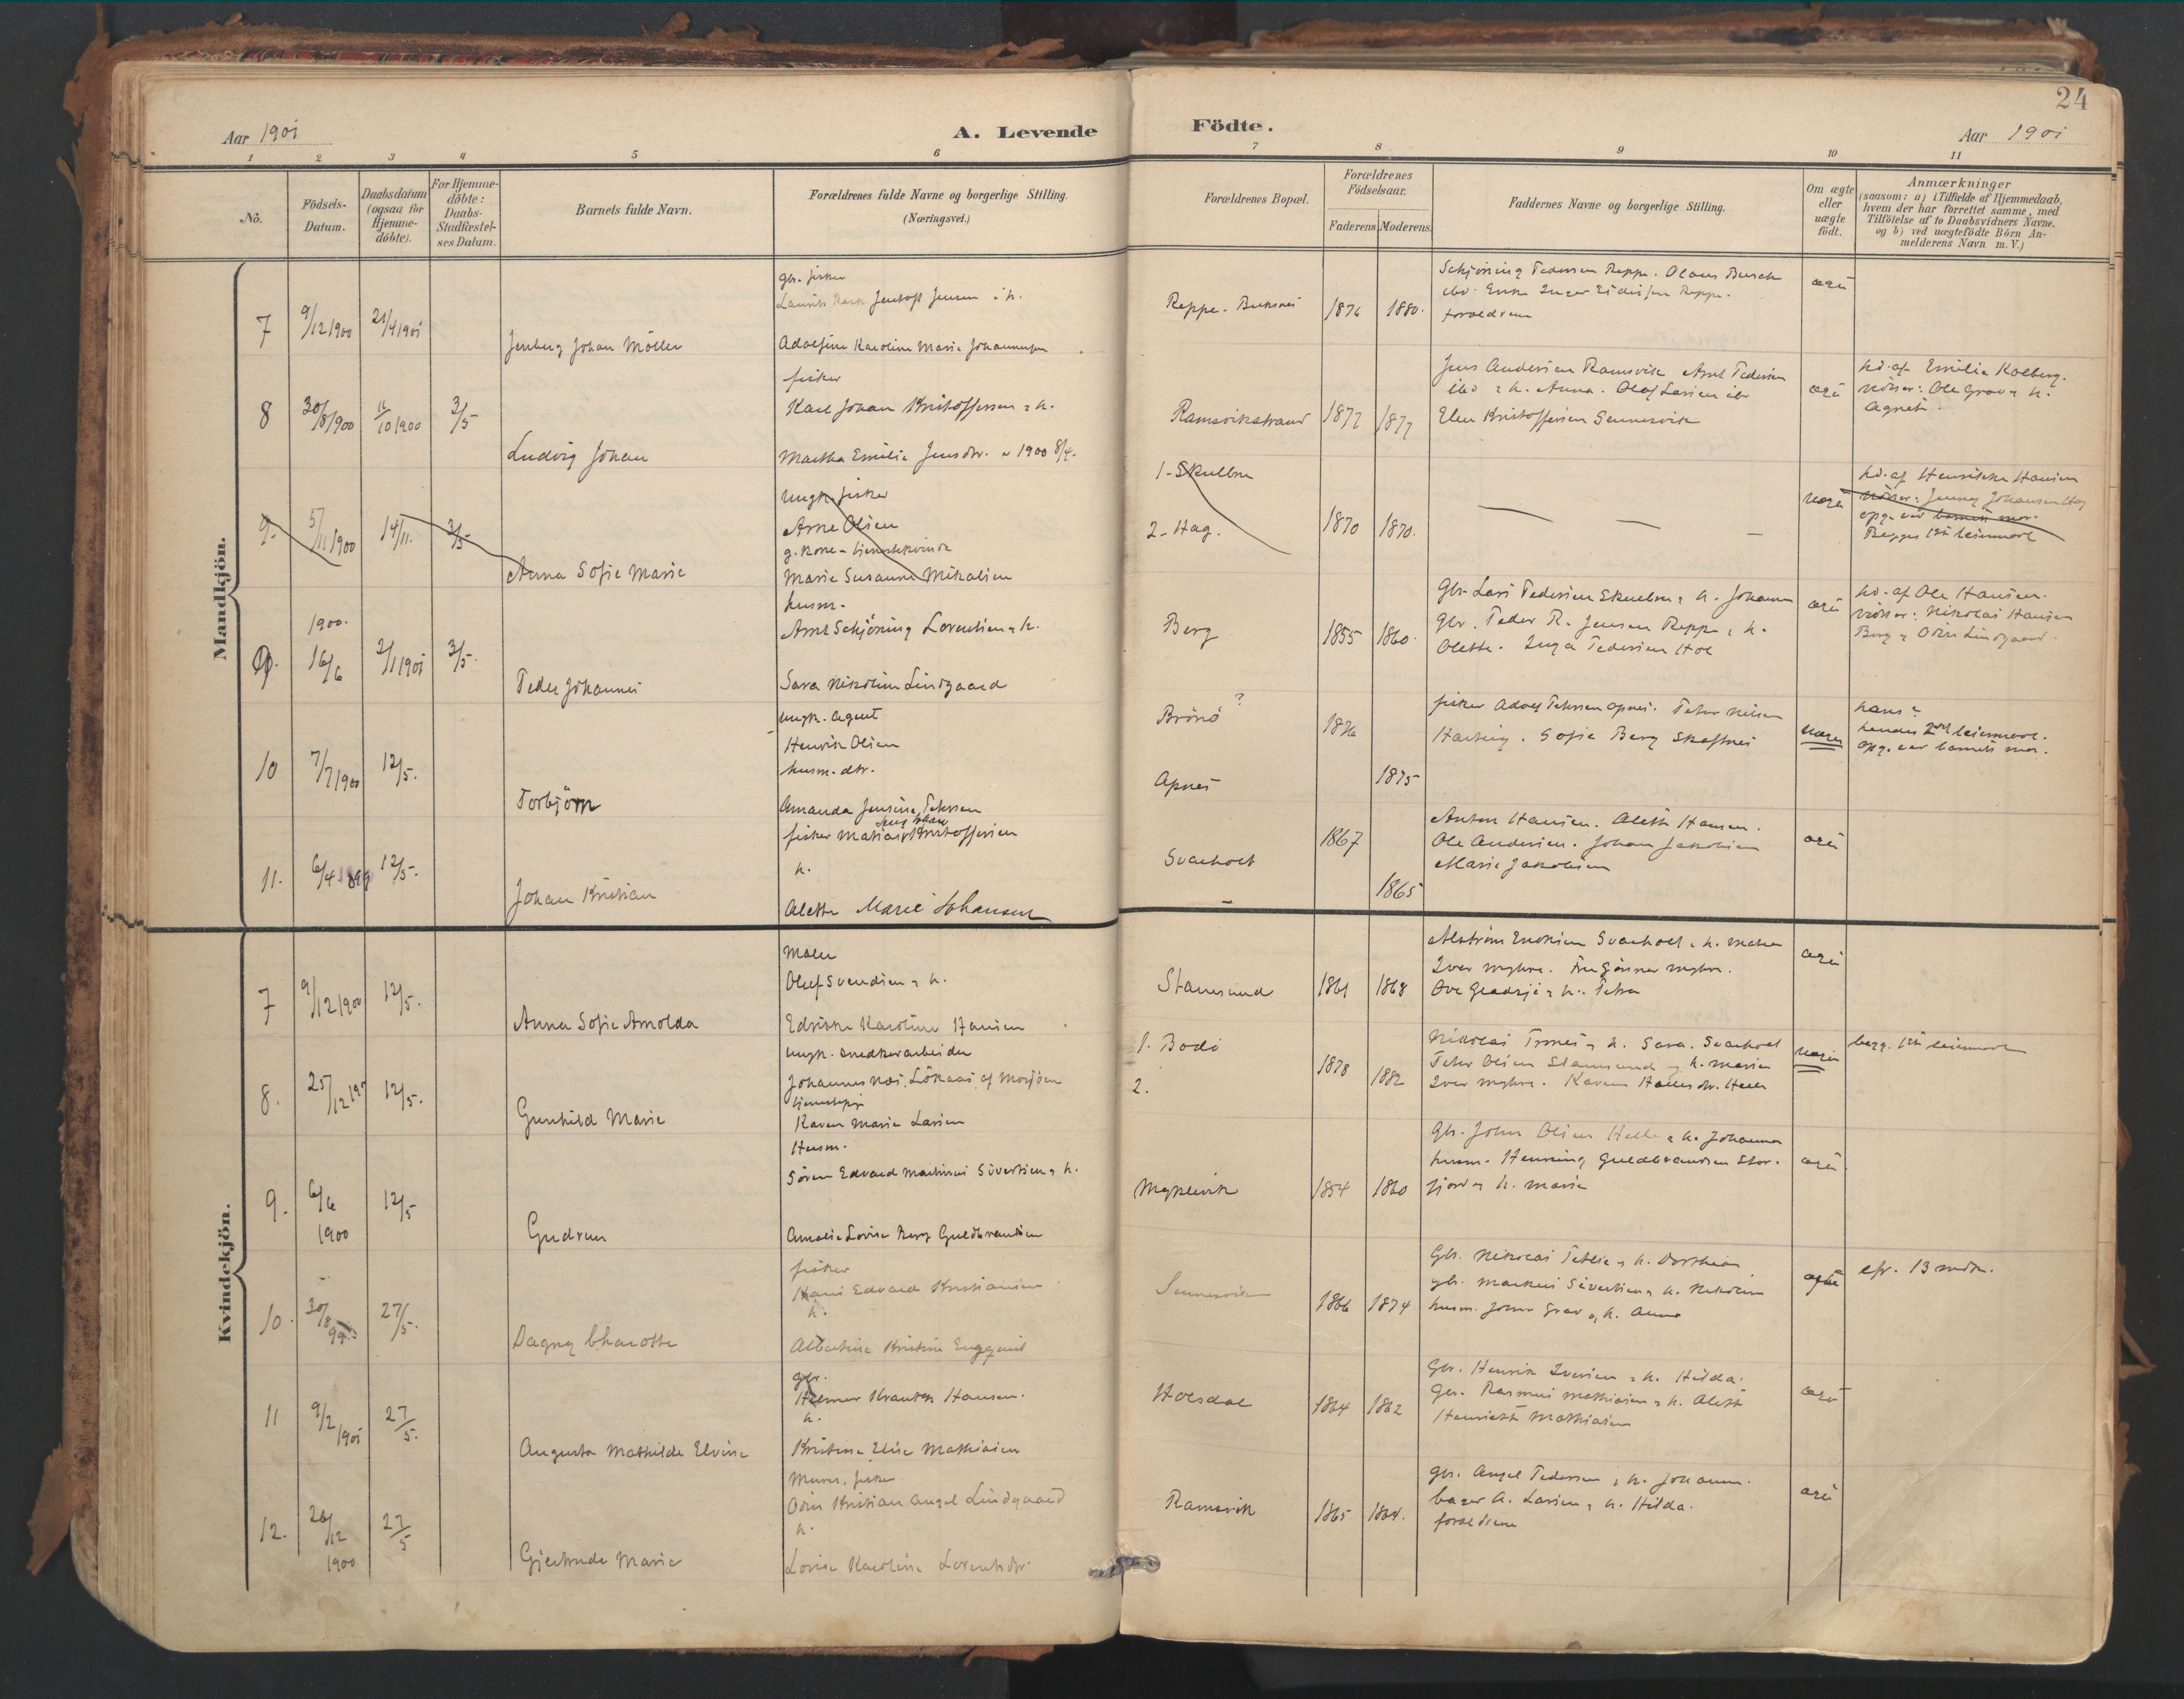 24
Aar 1901
A. Levende Födte.
Aar 1901
1 2 3 4 5 6 7 8 9 10 11
No.
Födsels-
Datum.
Daabsdatum
(ogsaa för
Hjemme-
döbte).
For Hjemme-
döbte:
Daabs-
Stadfæstel-
ses Datum.
Barnets fulde Navn.
Forældrenes fulde Navne og borgerlige Stilling.
(Næringsvei.)
Forældrenes Bopæl.
Forældrenes
Födselsaar.
Faderens Moderens
Faddernes Navne og borgerlige Stilling.
Om ægte
eller
uægte
födt.
Anmærkninger
(saasom: a) i Tilfælde af Hjemmedaab,
hvem der har forrettet samme, med
Tilföielse af to Daabsvidners Navne,
og b) ved uægtefödte Börn An-
melderens Navn m. V.)
Mandkjön.
7
9/12 1900
21/4 1901
Jenberg Johan Möller
gbr. fisker
Jentoft Jensen & h.
Adolfine Karoline Marie Johannesen
Reppe. Buksnes
1876 1880.
Schjöning Pedersen Reppe. Olaus Busch
ibd. Reppe.
forældrene
ægte
8
30/8 1900
11/10 1900
3/5
Ludvig Johan
fisker
Karl Johan Kristoffersen & h.
Martha Emilie Jensdtr. v 1900 8/4.
Ramsvikstrand
1877 1877
Jens Andersen Ramsvik Arnt Pedersen
ibd & h. Anna. Olaf Larsen ibd
Elen Kristoffersen Sennesvik
ægte
hd. af Emilie Kolberg.
vidner: Ole Grav & h.
Agnete.
9.
5/11 1900
14/11.
3/5
Anna Sofie Marie
ungk. fisker
Arne Olsen
g. kone - tjenestekvinde
Marie Susanne Mikalsen
1-Skulbru
2-Hag.
1870 1870.
uægte
hd. af Henrikke Hansen
vidner: Jenny Johansen Hag
opg. ved barnets mor.
Begges 1ste leiermaal
9.
1900.
16/6
2/1 1901
3/5.
Peder Johannes
husm.
Arnt Schjöning Lorentsen & h.
Sara Nikoline Lindgaard
Berg
1855 1860.
Gbr. Lars Pedersen Skulbru & h. Johanna
gbr. Peder R. Jensen Reppe & h.
Olette. Inga Pedersen Hol
ægte
hd. af Ole Hansen.
vidner: Nikolai Hansen
Berg & Odin Lindgaard.
10
7/7 1900
12/5.
Torbjörn
ungk. agent
Henrik Olsen
husm. dtr.
Amanda Jensine Petersen
Brönö ?
Apnes
1876
1875
fisker Adolf Petersen Apnes. Peter Nilsen
Sofie Berg Skaftnes
uægte
hans ?
hendes 2det leiermaal.
opg. ved barnets mor.
11.
6/4 1899
12/5.
Johan Kristian
fisker Matias Jens Johan Kristoffersen
h.
Alette Marie Johansen
Svarholt
1867
1865
Anton Hansen. Alette Hansen.
Ole Andersen. Johan Jakobsen
Marie Jakobsen
ægte
Kvindekjön.
7
9/12 1900
12/5.
Anna Sofie Arnolda
Maler
Oluf Svendsen & h.
Edvikke Karoline Hansen
Stamsund
1861 1868
Svarholt & h.
Iver Myhre. Myhre.
& h. Petra
ægte
8.
25/12
12/5.
Gunhild Marie
ungk. snedkerarbeider
Johannes af Mosjöen
tjenestepige
Karen Marie Larsen
1. Bodö
2.
1878
1882
Nikolai & h. Sara. Svarholt
Peter Olsen Stamsund og h. Marie
Iver Myhre. Karen Hansdtr. Helle
uægte
begg. 1ste leiermaal
9.
6/6
1900
12/5
Gudrun
Husm.
Sören Edvard Martinus Sivertsen & h.
Amalie Lovise Berg Guldbrandsen
Myklevik
1854 1860
Gbr. John Olsen Helle & h. Johanna
husm. Henning Guldbrandsen Stor-
fjord & h. Marie
ægte
10.
30/8 99.
27/5.
Dagny Charlotte
fisker
Hans Edvard Kristiansen
h.
Albertine Kristine Engqvist
Sennesvik
1866 1874
Gbr. Nikolai & h. Dorthea
gbr. Markus Sivertsen & h. Nikoline
husm. John Grav og h. Anna
ægte
efr. 13 mdr.
11
9/2 1901
27/5.
Augusta Mathilde Elvine
gbr.
Hilmar Krantz Hansen.
h.
Kristine Elise Mathisen
Holsdal
1864 1862
Gbr. Henrik Iversen & h. Hilda.
Gbr. Rasmus Mathisen & h. Alette
Henriette Mathisen
ægte
12.
26/12
1900
27/5
Gjertrude Marie
Murer, fisker
Odin Kristian Angel Lindgaard
h.
Lovise Karoline Lorentsdtr.
Ramsvik
1865 1864.
gbr. Angel Pedersen & h. Johanna.
bager A. Larsen & h. Hilda.
forældrene
ægte